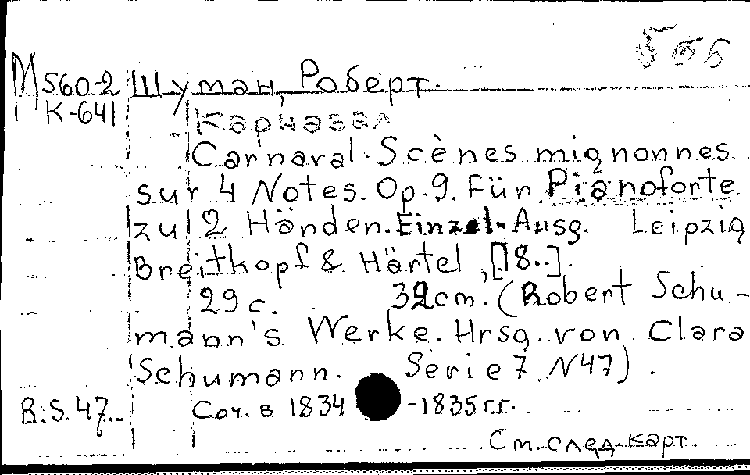 566
M 560-2 Шуман, Роберт.
К-641 Карнавал
Carnaval. Scènes mignonnes
sur 4 Notes. Op. 9. Für Pianoforte
zu 2 Händen. Einzel-Ausg. Leipzig
Breitkopf & Härtel, [18..].
29 с. 32 cm. (Robert Schu-
mann's Werke. Hrsg. von Clara
Schumann. Serie 7 N 47).
R.S. 47. Соч. в 1834-1835 г.г.
См. след. карт.